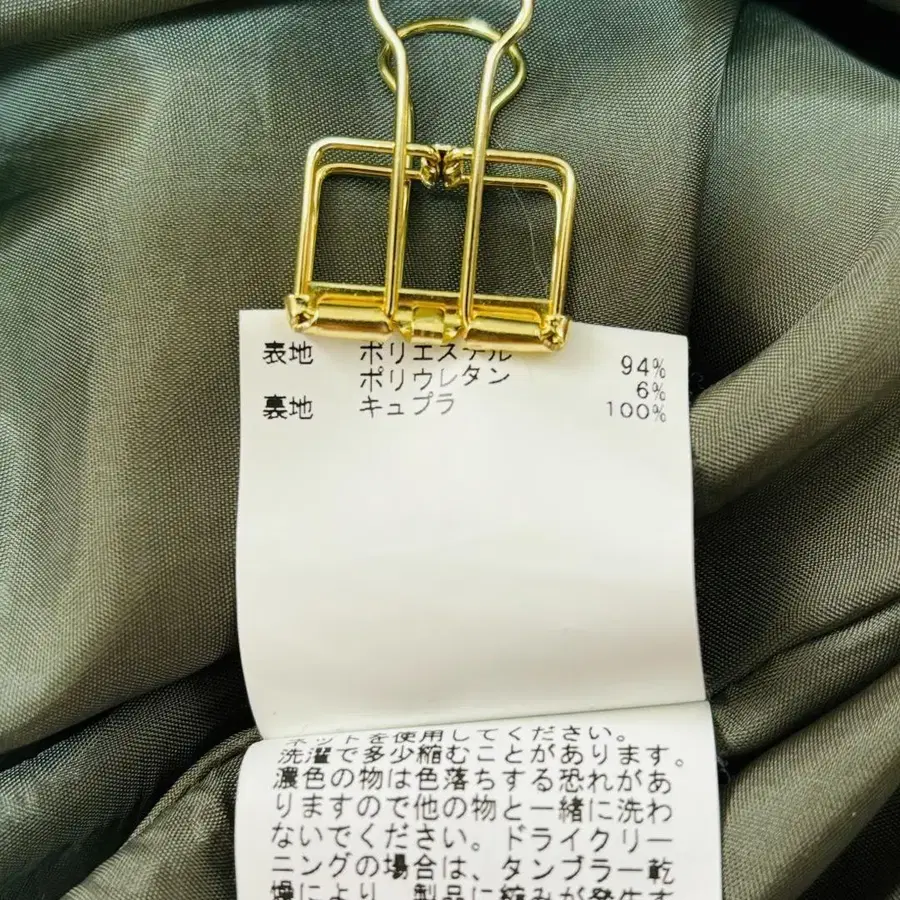 表地 ポリエステル 94%
ポリウレタン 6%
裏地 キュプラ 100%
ネットを使用してください。
洗濯で多少縮むことがあります。
濃色の物は色落ちする恐れがあ
りますので他の物と一緒に洗わ
ないでください。ドライクリー
ニングの場合は、タンブラー乾
燥により、製品に縮みが発生す